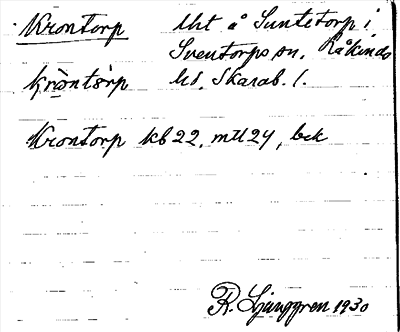 Krontorp lht å Suntetorp i
Sventorps sn. Kåkinds
kròntòrp hd. Skarab. l.
Krontorp kb 22, mtl 24, bek
R. Ljunggren 1930